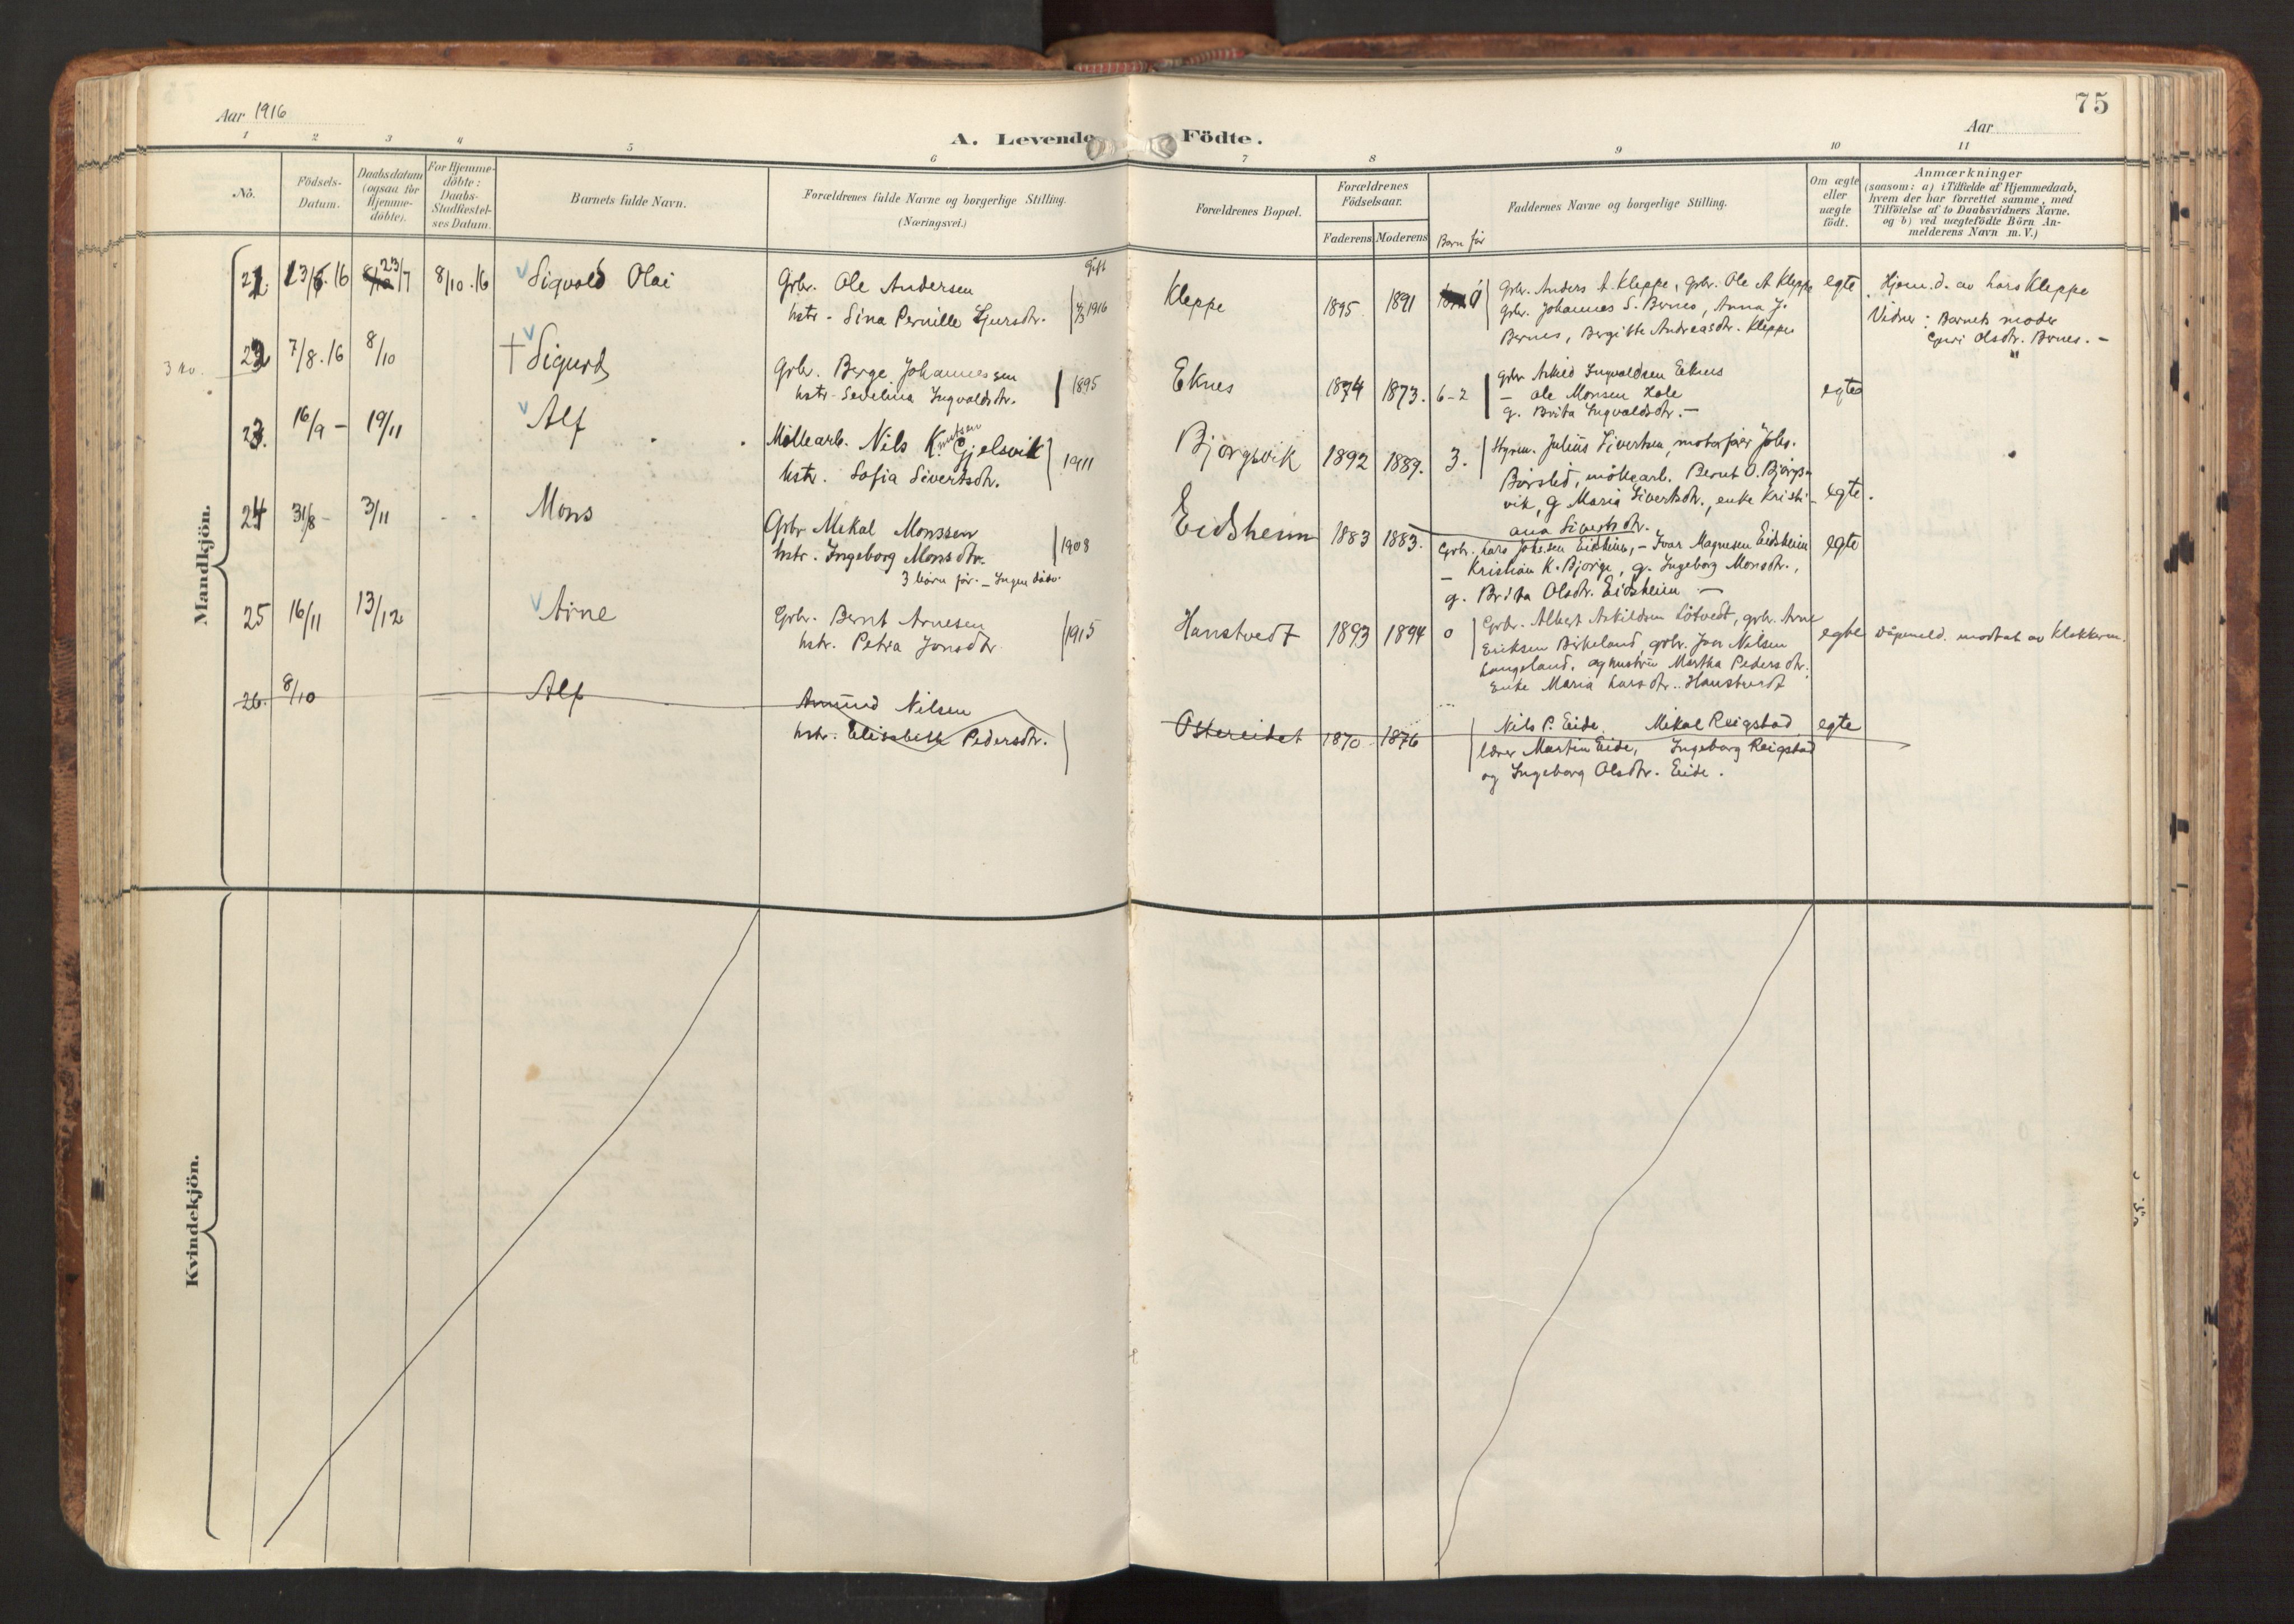 75
Aar 1916
A. Levende Födte.
Aar
1 2 3 4 5 6 7 8 9 10 11
No.
Födsels-Datum.
Daabsdatum (ogsaa for Hjemme-döbte).
For Hjemme-döbte: Daabs-Stadfæstel-ses Datum.
Barnets fulde Navn.
Forældrenes fulde Navne og borgerlige Stilling.
(Næringsvei.)
Forældrenes Bopæl.
Forældrenes Födselsaar.
Faderens Moderens
Faddernes Navne og borgerlige Stilling.
Om ægte eller uægte födt.
Anmærkninger
(saasom: a) i Tilfælde af Hjemmedaab,
hvem der har forrettet samme, med
Tilföielse af to Daabsvidners Navne.
og b) ved uægtefödte Börn An-
melderens Navn m. V.)
Barn før
Mandkjön.
21. 23/7 8/10.16 Sigvald Olai
Grbr. Ole Andersen
hstr. Sina Pernille Gjursdtr.
Gift
1916
Kleppe 1895 1891 0
Grbr. Anders A. Kleppe, grbr. Ole A Kleppe
grbr. Johannes S. Bernes, Anna J.
Bernes, Bergitte Andreasdtr. Kleppe
egte
Hjem.d. av Lars Kleppe
Vidner: Barnets moder
Guri Olsdtr. Bernes. -
22 7/8.16 8/10 † Sigurd
Grbr. Berge Johannessen
hstr. Sevelina Ingvaldsdtr.
1895
Eknes 1874 1873. 6-2
Grbr Askild Ingvaldsen Eknes
- Ole Monsen Hole
g. Brita Ingvaldsdtr. -
egte
23. 16/9 - 19/11 Alf
Möllearb. Nils Knutsen Gjelsvik
hstr. Sofia Sivertsdtr.
1911
Bjørgsvik 1892 1889. 3.
Styrm. Julius Sivertsen, motorfører Johs.
Børslid, møllearb. Bernt O. Bjørgs-
vik, g Maria Sivertsdtr., enke Kristi-
ana Sivertsdtr.
egte.
24 31/8 - 3/11 Mons
Grbr Mekal Monssen
hstr. Ingeborg Monsdtr.
3 børn før. - Ingen døde.
1908
Eidsheim 1883 1883.
Grbr. Lars Johs.sen Eidsheim, - Ivar Magnesen Eidsheim
- Kristian K. Bjørge, g. Ingeborg Monsdtr.,
g. Brita Olsdtr. Eidsheim -
egte
25 16/11 13/12 Arne
Grbr. Bernt Arnesen
hstr. Petra Jonsdtr
1915
Hanstvedt 1893 1894 0
Grbr. Albert Askildsen Løtvedt, grbr. Arne
Eriksen Birkeland, grbr. Jon Nilsen
Langeland. og hustru Martha Pedersdtr.
Enke Maria Larsdtr. Hanstvedt
egte
26. 8/10 Alf
Amund Nilsen
hstr. Elisabeth Pedersdtr.
Ostereidet 1870 1876
Nils P. Eide. Mikal Reigstad
lærer Martin Eide, Ingeborg Reigstad
og Ingeborg Olsdtr. Eide.
egte
Kvindekjön.